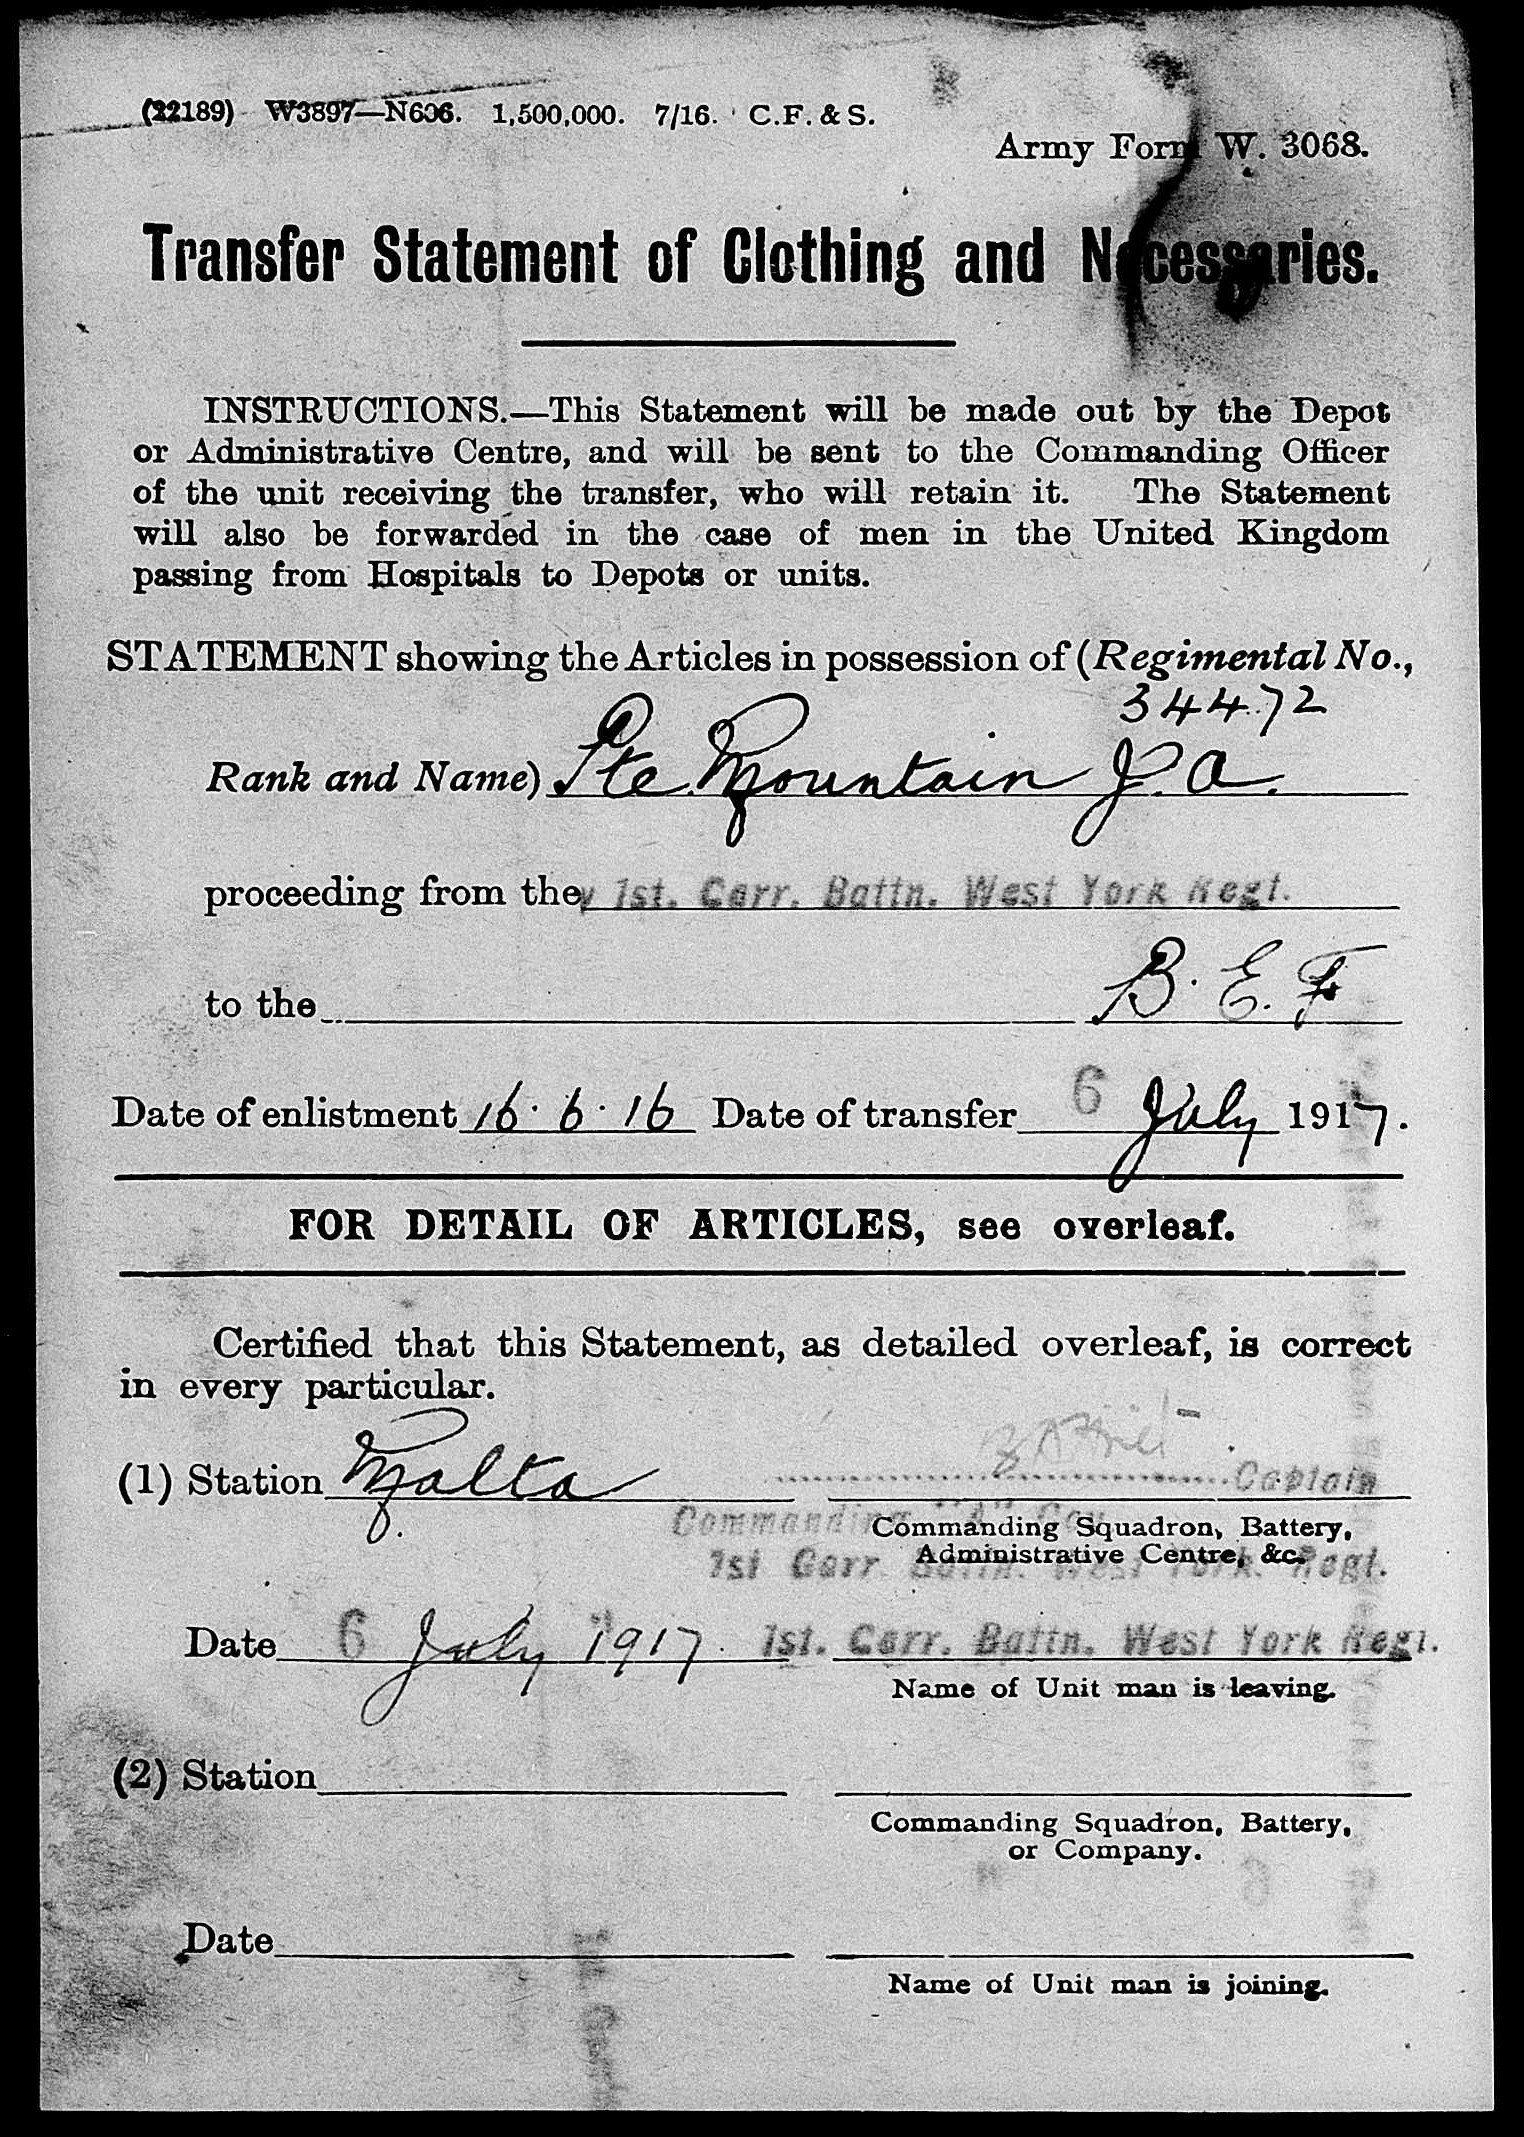 (22189) W3897—N606. 1,500,000. 7/16. C.F. & S.
Army Form W. 3068.
Transfer Statement of Clothing and Necessaries.
INSTRUCTIONS.—This Statement will be made out by the Depot
or Administrative Centre, and will be sent to the Commanding Officer
of the unit receiving the transfer, who will retain it. The Statement
will also be forwarded in the case of men in the United Kingdom
passing from Hospitals to Depots or units.
STATEMENT showing the Articles in possession of (Regimental No.,
34472
Rank and Name) Pte. Mountain J. A.
proceeding from the 1st. Garr. Battn. West York Regt.
to the B. E. F
Date of enlistment 16.6.16 Date of transfer 6 July 1917.
FOR DETAIL OF ARTICLES, see overleaf.
Certified that this Statement, as detailed overleaf, is correct
in every particular.
(1) Station Malta Captain
Commanding "A" Coy
Commanding Squadron, Battery,
Administrative Centre, &c.
1st Garr. Battn. West York. Regt.
Date 6 July 1917. 1st. Garr. Battn. West York Regt.
Name of Unit man is leaving.
(2) Station
Commanding Squadron, Battery,
or Company.
Date
Name of Unit man is joining.